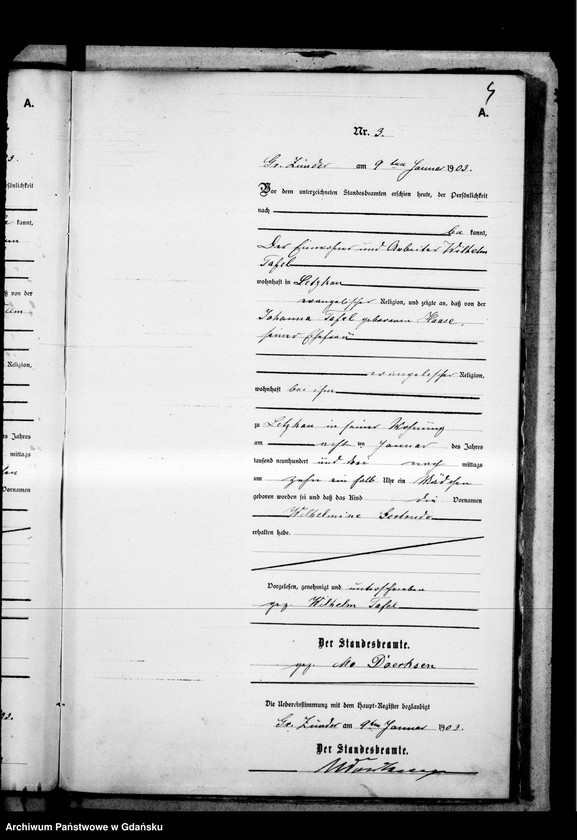 A.
5
A.
Nr. 3.
Gr. Zünder am 9 ten Januar 1903.
Vor dem unterzeichneten Standesbeamten erschien heute, der Persönlichkeit
nach
be kannt,
Der Einwohner und Arbeiter Wilhelm
Tafel
wohnhaft in Letzkau
evangelischer Religion, und zeigte an, daß von der
Johanna Tafel geborenen Haase,
seiner Ehefrau
evangelischer Religion,
wohnhaft bei ihm
zu Letzkau in seiner Wohnung
am acht ten Januar des Jahres
tausend neunhundert und drei nach mittags
um zehn ein halb Uhr ein Mädchen
geboren worden sei und daß das Kind die Vornamen
Wilhelmine
erhalten habe.
Vorgelesen, genehmigt und unterschrieben
gez. Wilhelm Tafel
Der Standesbeamte.
gez. Doerksen
Die Uebereinstimmung mit dem Haupt-Register beglaubigt
Gr. Zünder am 9ten Januar 1903.
Der Standesbeamte.
Archiwum Państwowe w Gdańsku